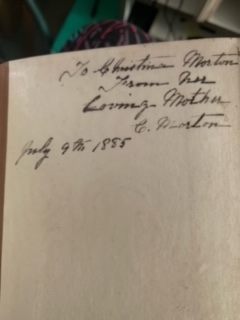 To Christina Morton
From her
Loving Mother
C. Morton
July 9th 1885